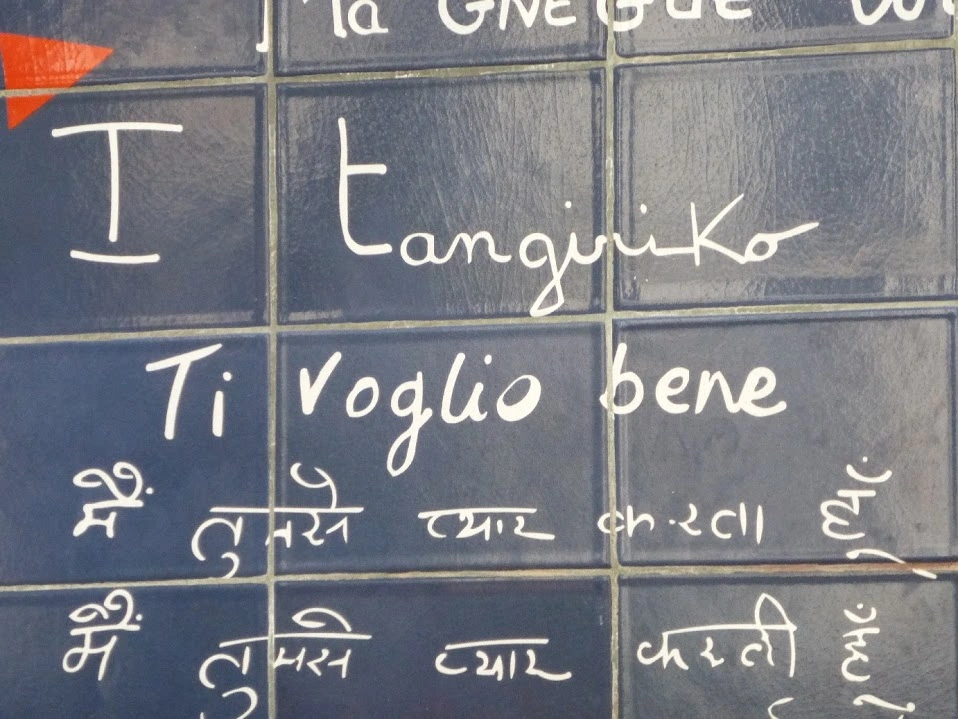 Ta GNEGUE
I tangiriko
Ti voglio bene
मैं तुमसे प्यार करता हूँ
मैं तुमसे प्यार करती हूँ